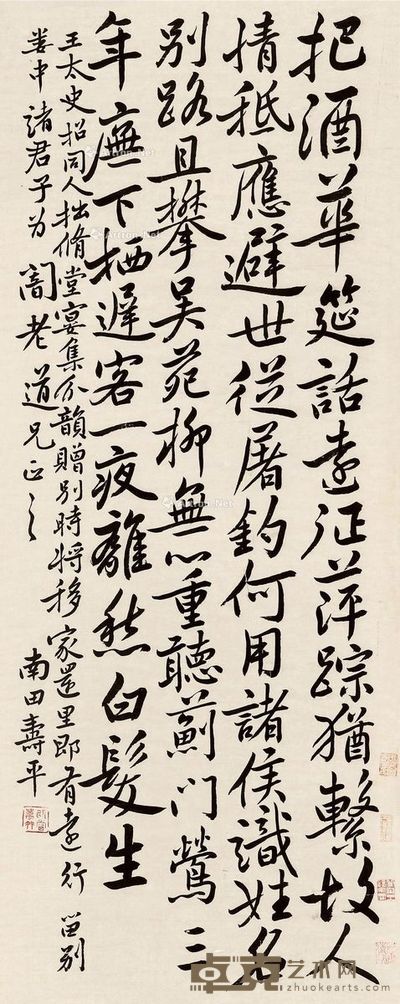 把酒華筵話遠征萍踪猶繫故人
情秪應避世從屠釣何用諸侯識姓名
別路且攀吴苑柳無心重聽薊门鶯三
年廡下栖遲客一夜離愁白髮生
王太史招同人拙脩堂宴集分韻贈別時将移家還里即有遠行 留別
婁中諸君子为 闇老道兄正之
南田壽平
卓克艺术网
www.zhuokearts.com